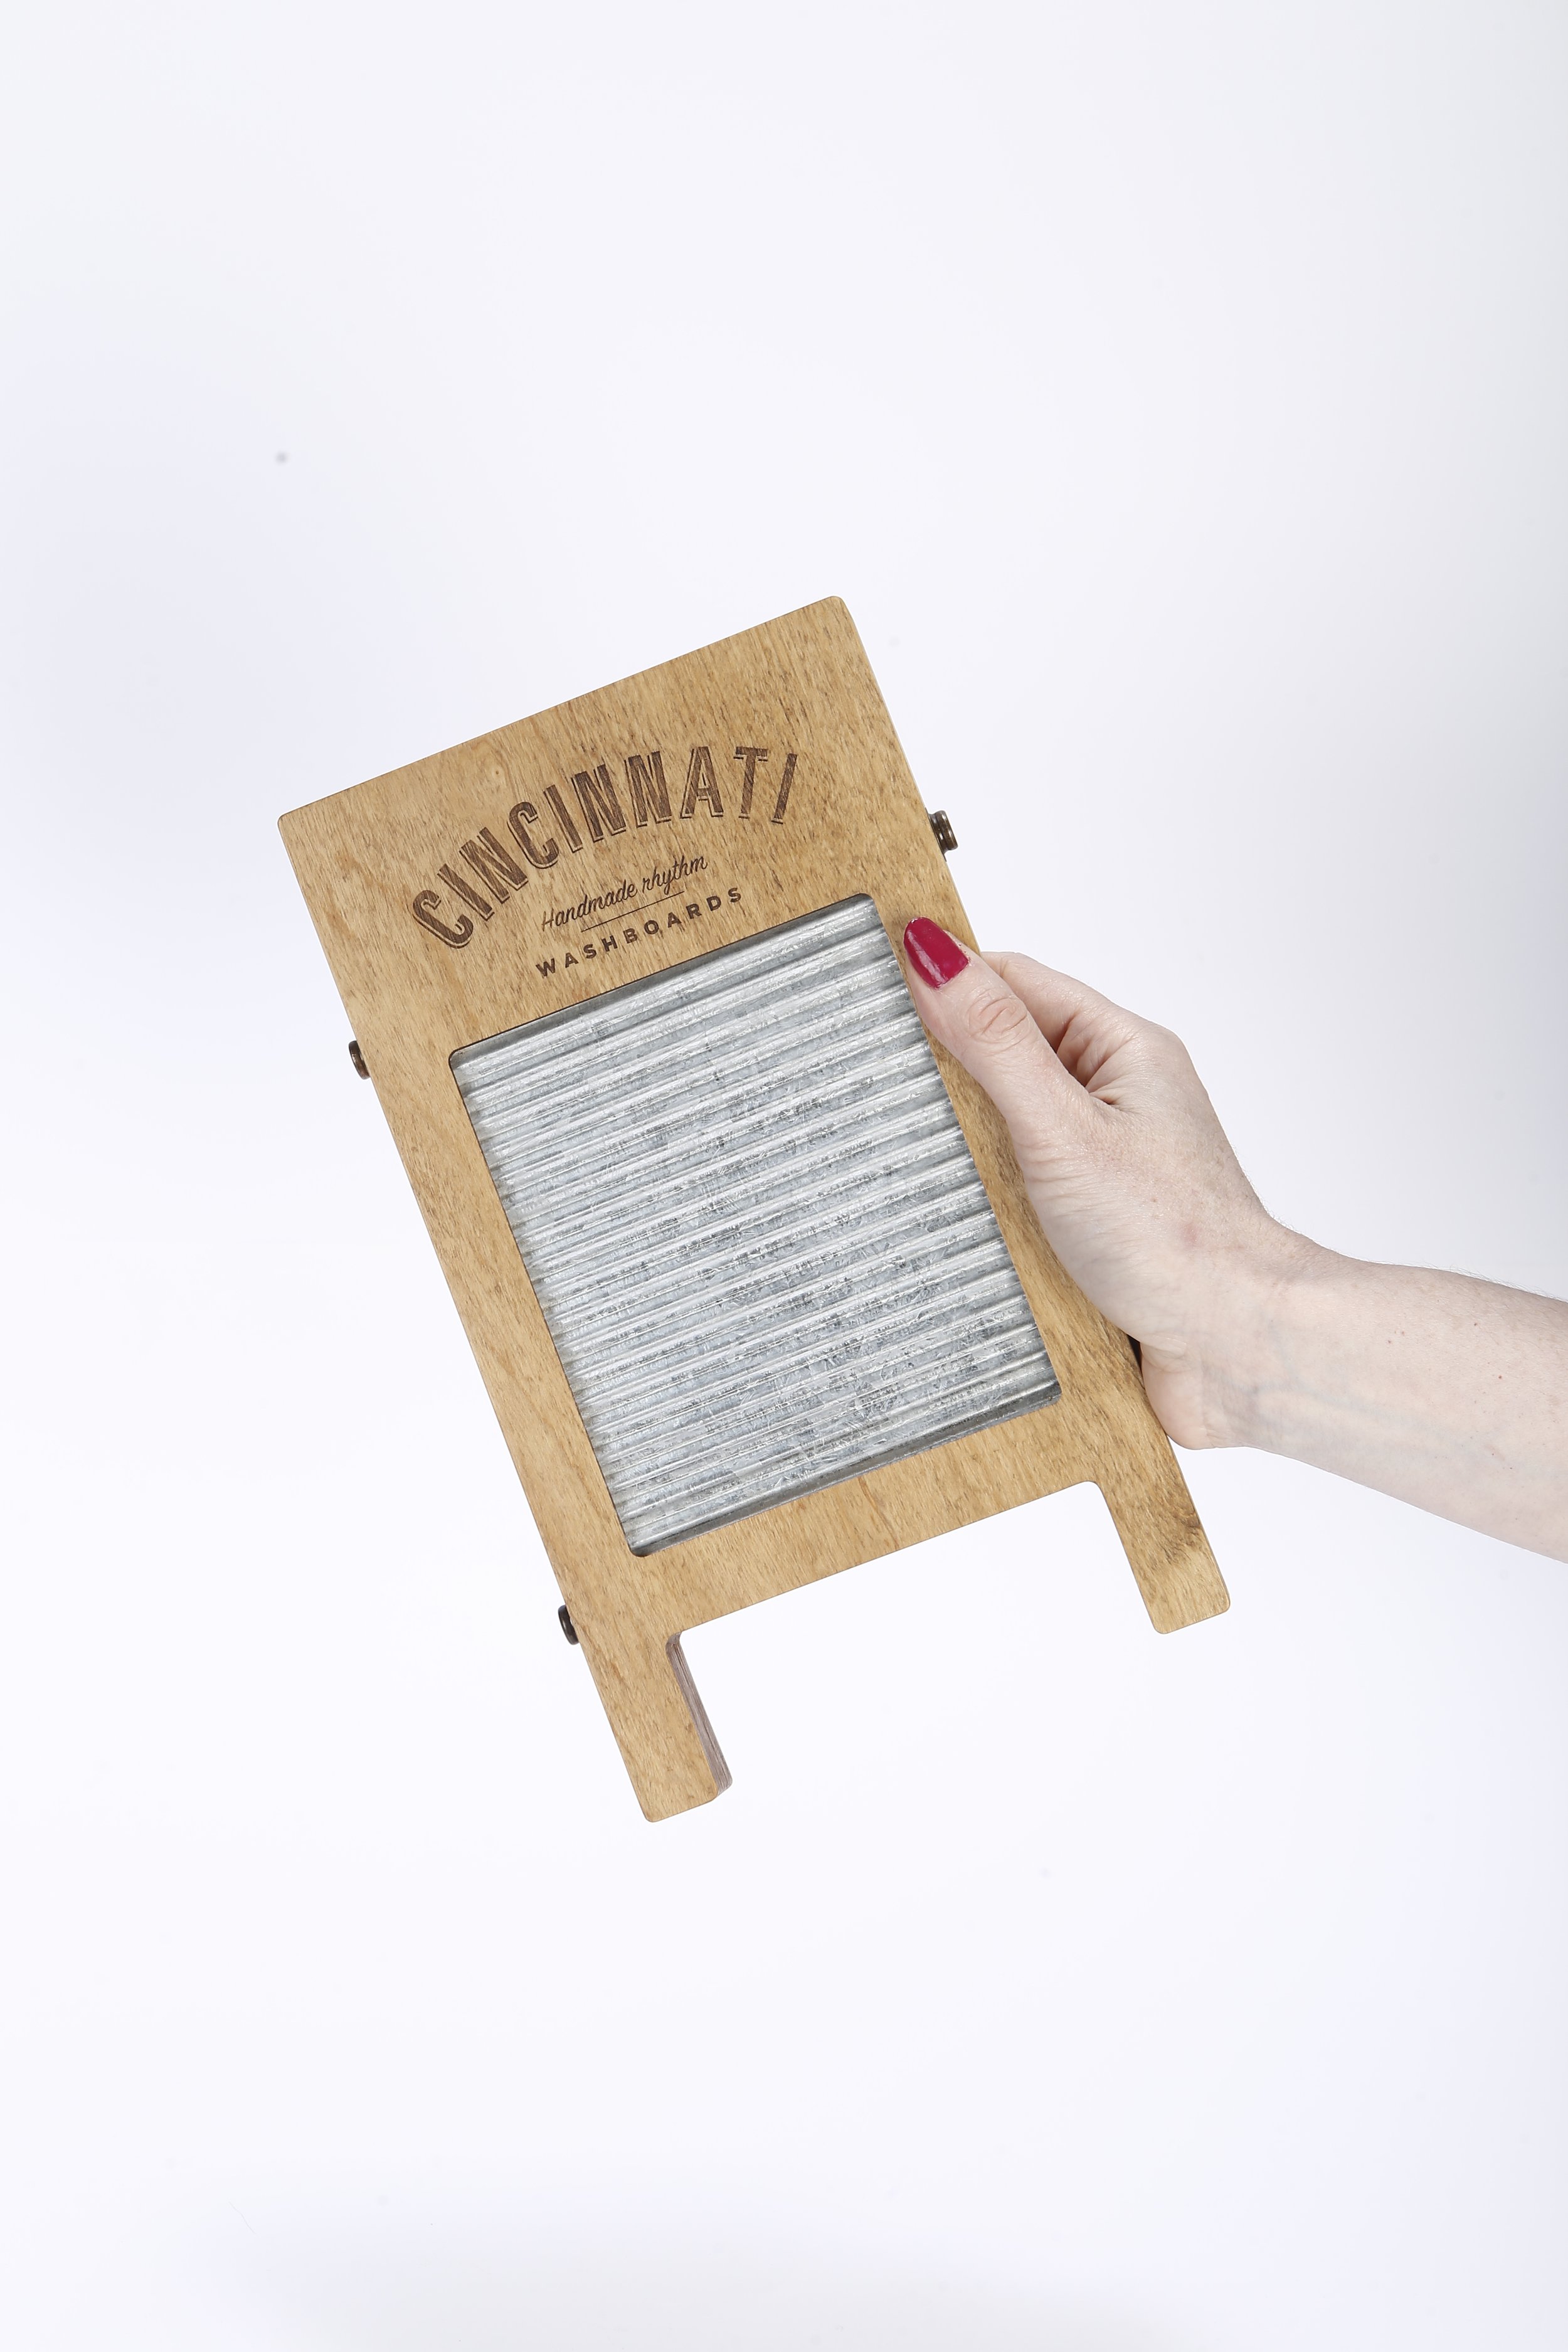 CINCINNATI
Handmade rhythm
WASHBOARDS